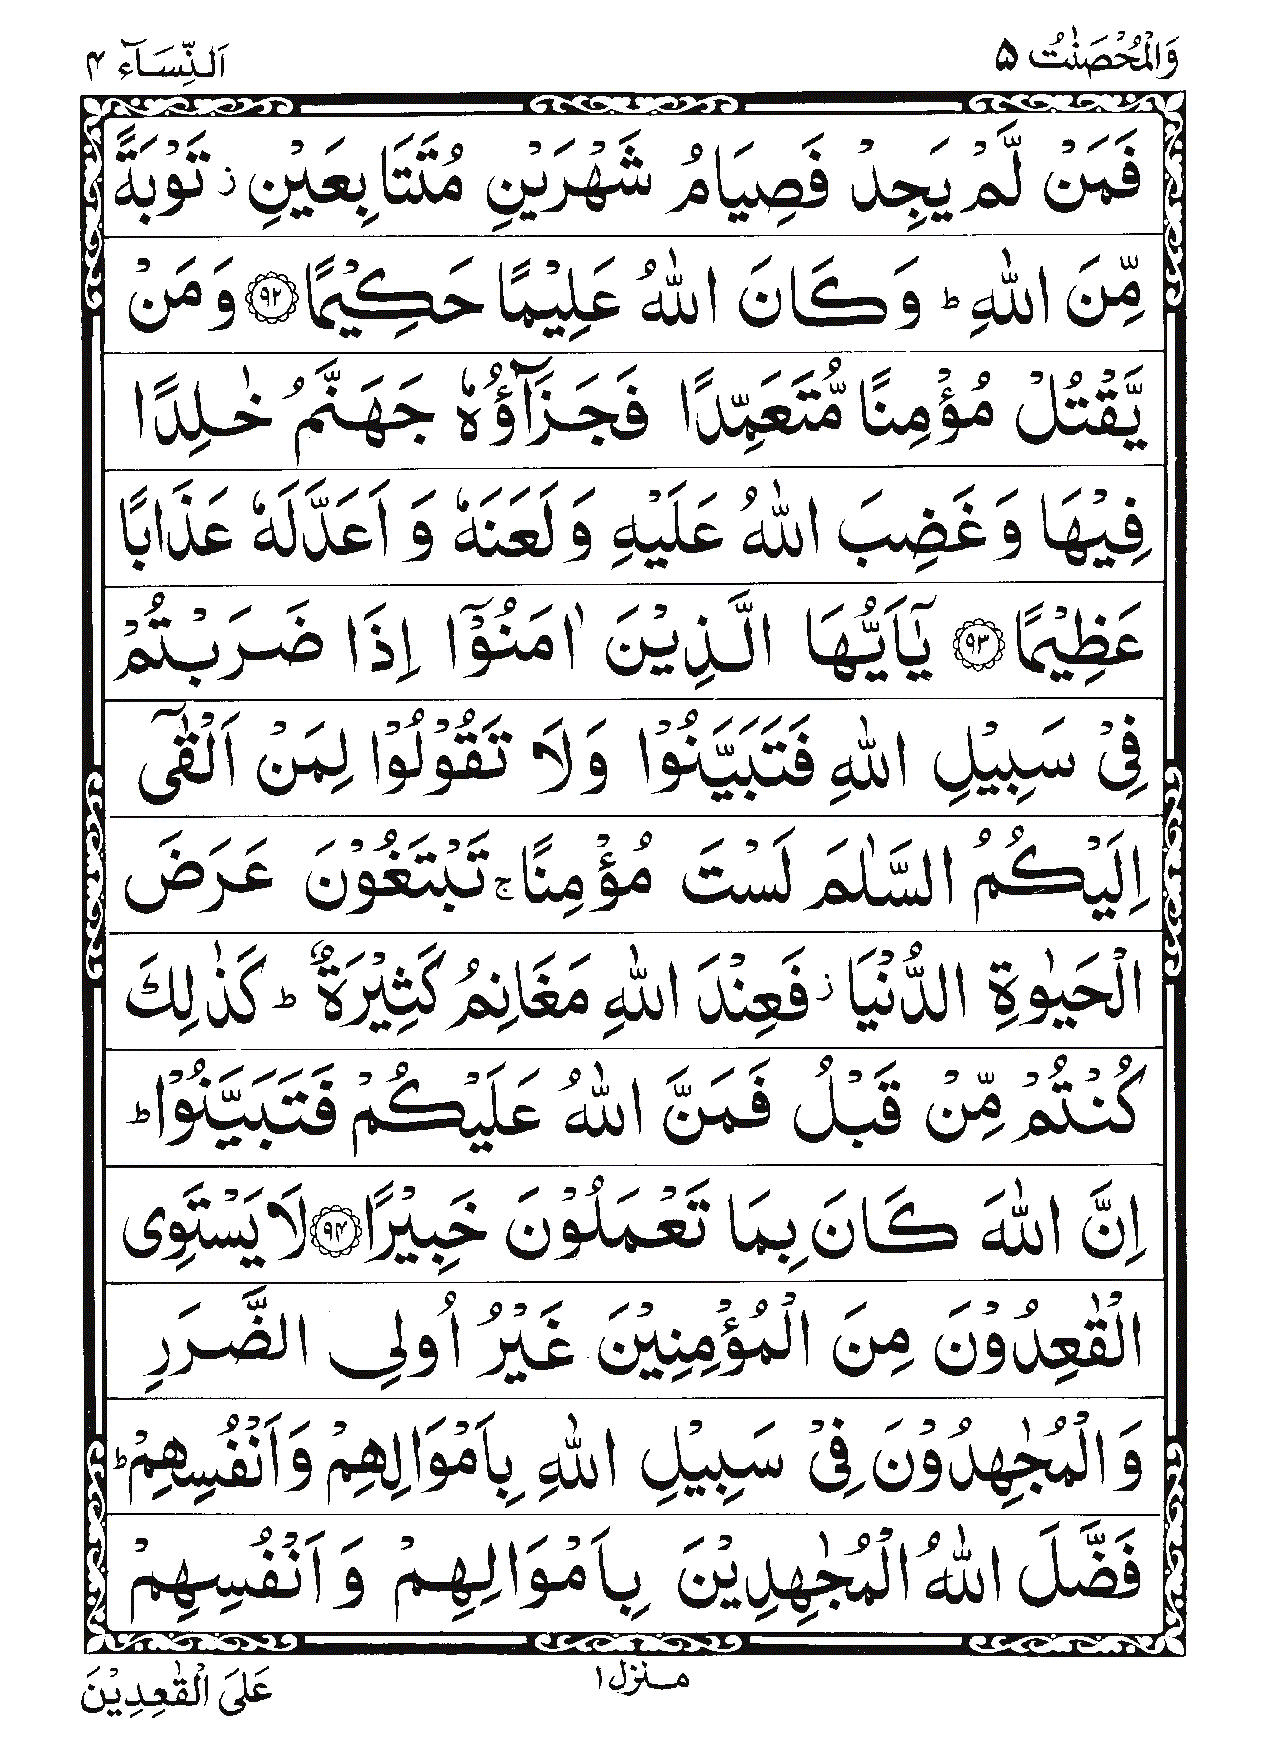 وَالْمُحْصَنٰتُ ۵
اَلنِّسَآء ۴
فَمَنْ لَّمْ يَجِدْ فَصِيَامُ شَهْرَيْنِ مُتَتَابِعَيْنِ ز تَوْبَةً
مِّنَ اللّٰهِ ؕ وَكَانَ اللّٰهُ عَلِيْمًا حَكِيْمًا ﴿۹۲﴾ وَمَنْ
يَّقْتُلْ مُؤْمِنًا مُّتَعَمِّدًا فَجَزَآؤُهٗ جَهَنَّمُ خٰلِدًا
فِيْهَا وَغَضِبَ اللّٰهُ عَلَيْهِ وَلَعَنَهٗ وَاَعَدَّلَهٗ عَذَابًا
عَظِيْمًا ﴿۹۳﴾ يٰٓاَيُّهَا الَّذِيْنَ اٰمَنُوْٓا اِذَا ضَرَبْتُمْ
فِيْ سَبِيْلِ اللّٰهِ فَتَبَيَّنُوْا وَلَا تَقُوْلُوْا لِمَنْ اَلْقٰٓى
اِلَيْكُمُ السَّلٰمَ لَسْتَ مُؤْمِنًا ۚ تَبْتَغُوْنَ عَرَضَ
الْحَيٰوةِ الدُّنْيَا ز فَعِنْدَ اللّٰهِ مَغَانِمُ كَثِيْرَةٌ ؕ كَذٰلِكَ
كُنْتُمْ مِّنْ قَبْلُ فَمَنَّ اللّٰهُ عَلَيْكُمْ فَتَبَيَّنُوْا ؕ
اِنَّ اللّٰهَ كَانَ بِمَا تَعْمَلُوْنَ خَبِيْرًا ﴿۹۴﴾ لَا يَسْتَوِى
الْقٰعِدُوْنَ مِنَ الْمُؤْمِنِيْنَ غَيْرُ اُولِى الضَّرَرِ
وَالْمُجٰهِدُوْنَ فِيْ سَبِيْلِ اللّٰهِ بِاَمْوَالِهِمْ وَاَنْفُسِهِمْ ؕ
فَضَّلَ اللّٰهُ الْمُجٰهِدِيْنَ بِاَمْوَالِهِمْ وَاَنْفُسِهِمْ
منزل ۱
عَلَى الْقٰعِدِيْنَ